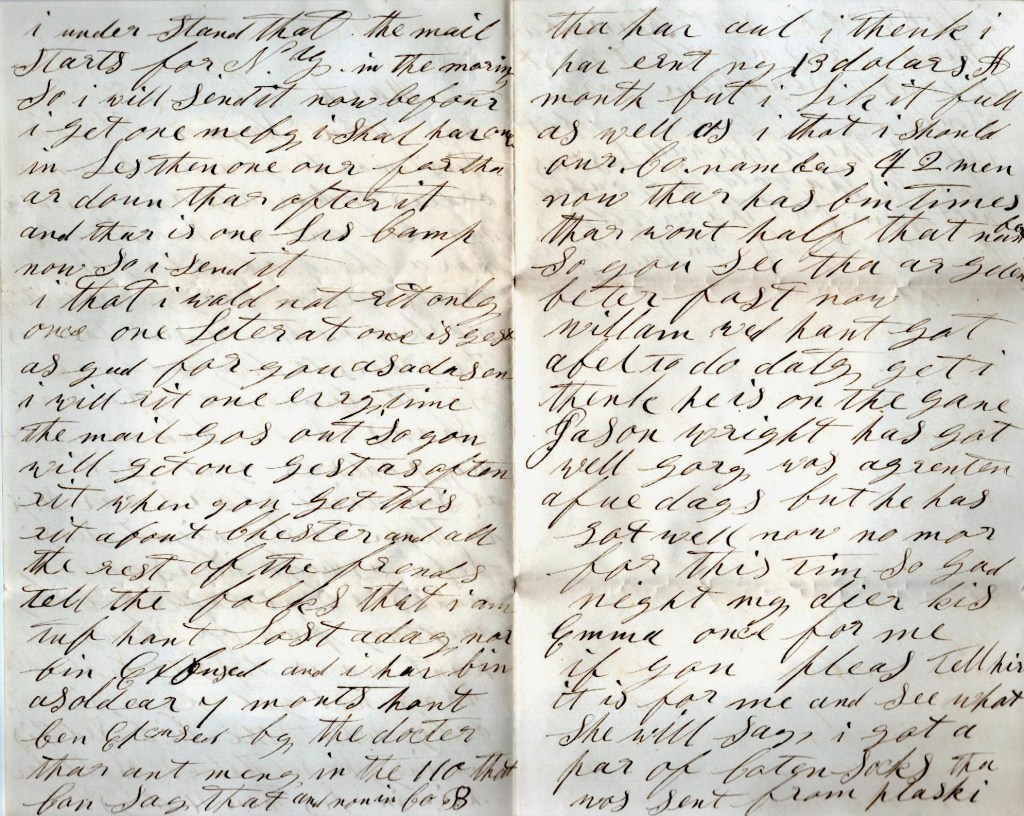 i under Stand that the mail
Starts for N.Y. in the morin
So i will Send it now befour
i get one mebey i Shal hav one
in Les then one our for tha
ar down thar after it
and thar is one Lis Camp
now So i Send it
i that i wald not rit only
once one Leter at once is gest
as gud for you as a dasen
i will rit one every time
the mail gos out So you
will get one gest as often
rit when you get this
rit about Chester and all
the rest of the frends
tell the folks that i am
tuf hant Lost a day nor
bin Excused and i hav bin
a soldear 7 monts hant
ben Excused by the docter
thar ant meny in the 110 that
Can Say that and non in Co B
tha hav and i thenk i
hav ernt my 13 dolars A
month but i Lik it full
as well as i that i Should
our Co. nambers 42 men
now thar has bin times
thar wont half that nomber
So you See tha ar geten
beter fast now
willam hant got
abel to do duty yet i
thenk he is on the gane
Jason wright has got
well gorg was agrenten
a fue days but he has
got well now no mor
for this Tim So gud
night my dier kis
Emma once for me
if you pleas tell hir
it is for me and See what
She will Say i got a
par of Coten Socks tha
was Sent from plaski